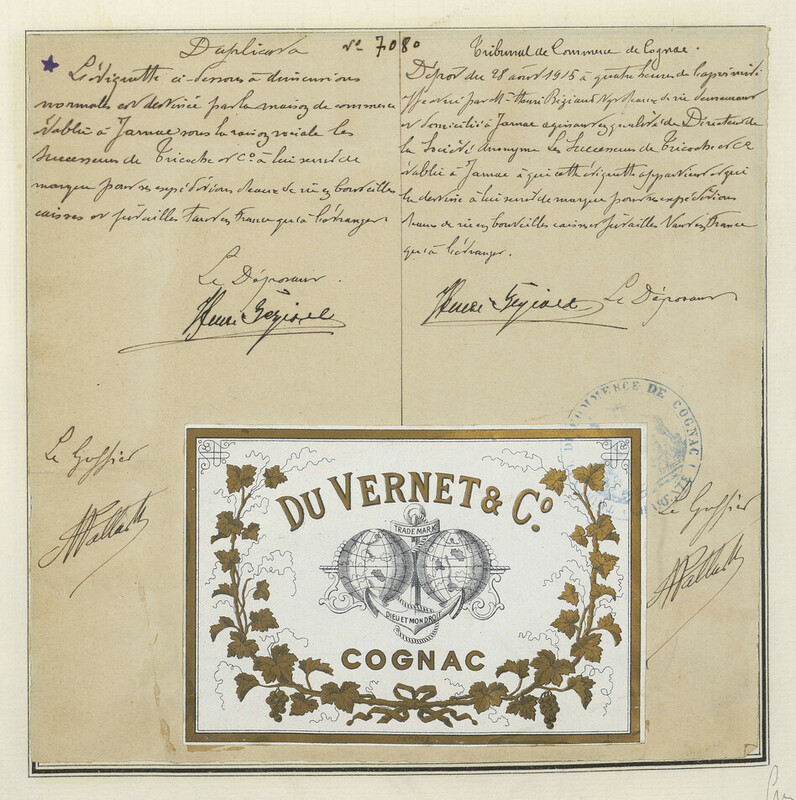 Duplicata
La vignette ci-dessous à dimensions
normales est destinée par la maison de commerce
établie à Jarnac sous la raison sociale les
Successeurs de Tricoche et Co à lui servir de
marque pour ses expéditions d'eaux de vie en bouteilles
caisses et futailles tant en France qu'à l'étranger.
Le Déposant.
Henri
Le Greffier
No 7080
Tribunal de Commerce de Cognac.
Dépôt du 28 août 1915 à quatre heures de l'après midi
effectué par M. Henri Négt eaux de vie demeurant
et domicilié à Jarnac agissant en qualité de Directeur de
la Société Anonyme Les Successeurs de Tricoche et Co
établie à Jarnac à qui cette étiquette appartient et qui
la destine à lui servir de marque pour ses expéditions
d'eaux de vie en bouteilles caisses et futailles tant en France
qu'à l'étranger.
Henri Le Déposant
Le Greffier
DE COMMERCE DE COGNAC
DU VERNET & Co.
TRADE MARK
DIEU ET MON DROIT
COGNAC